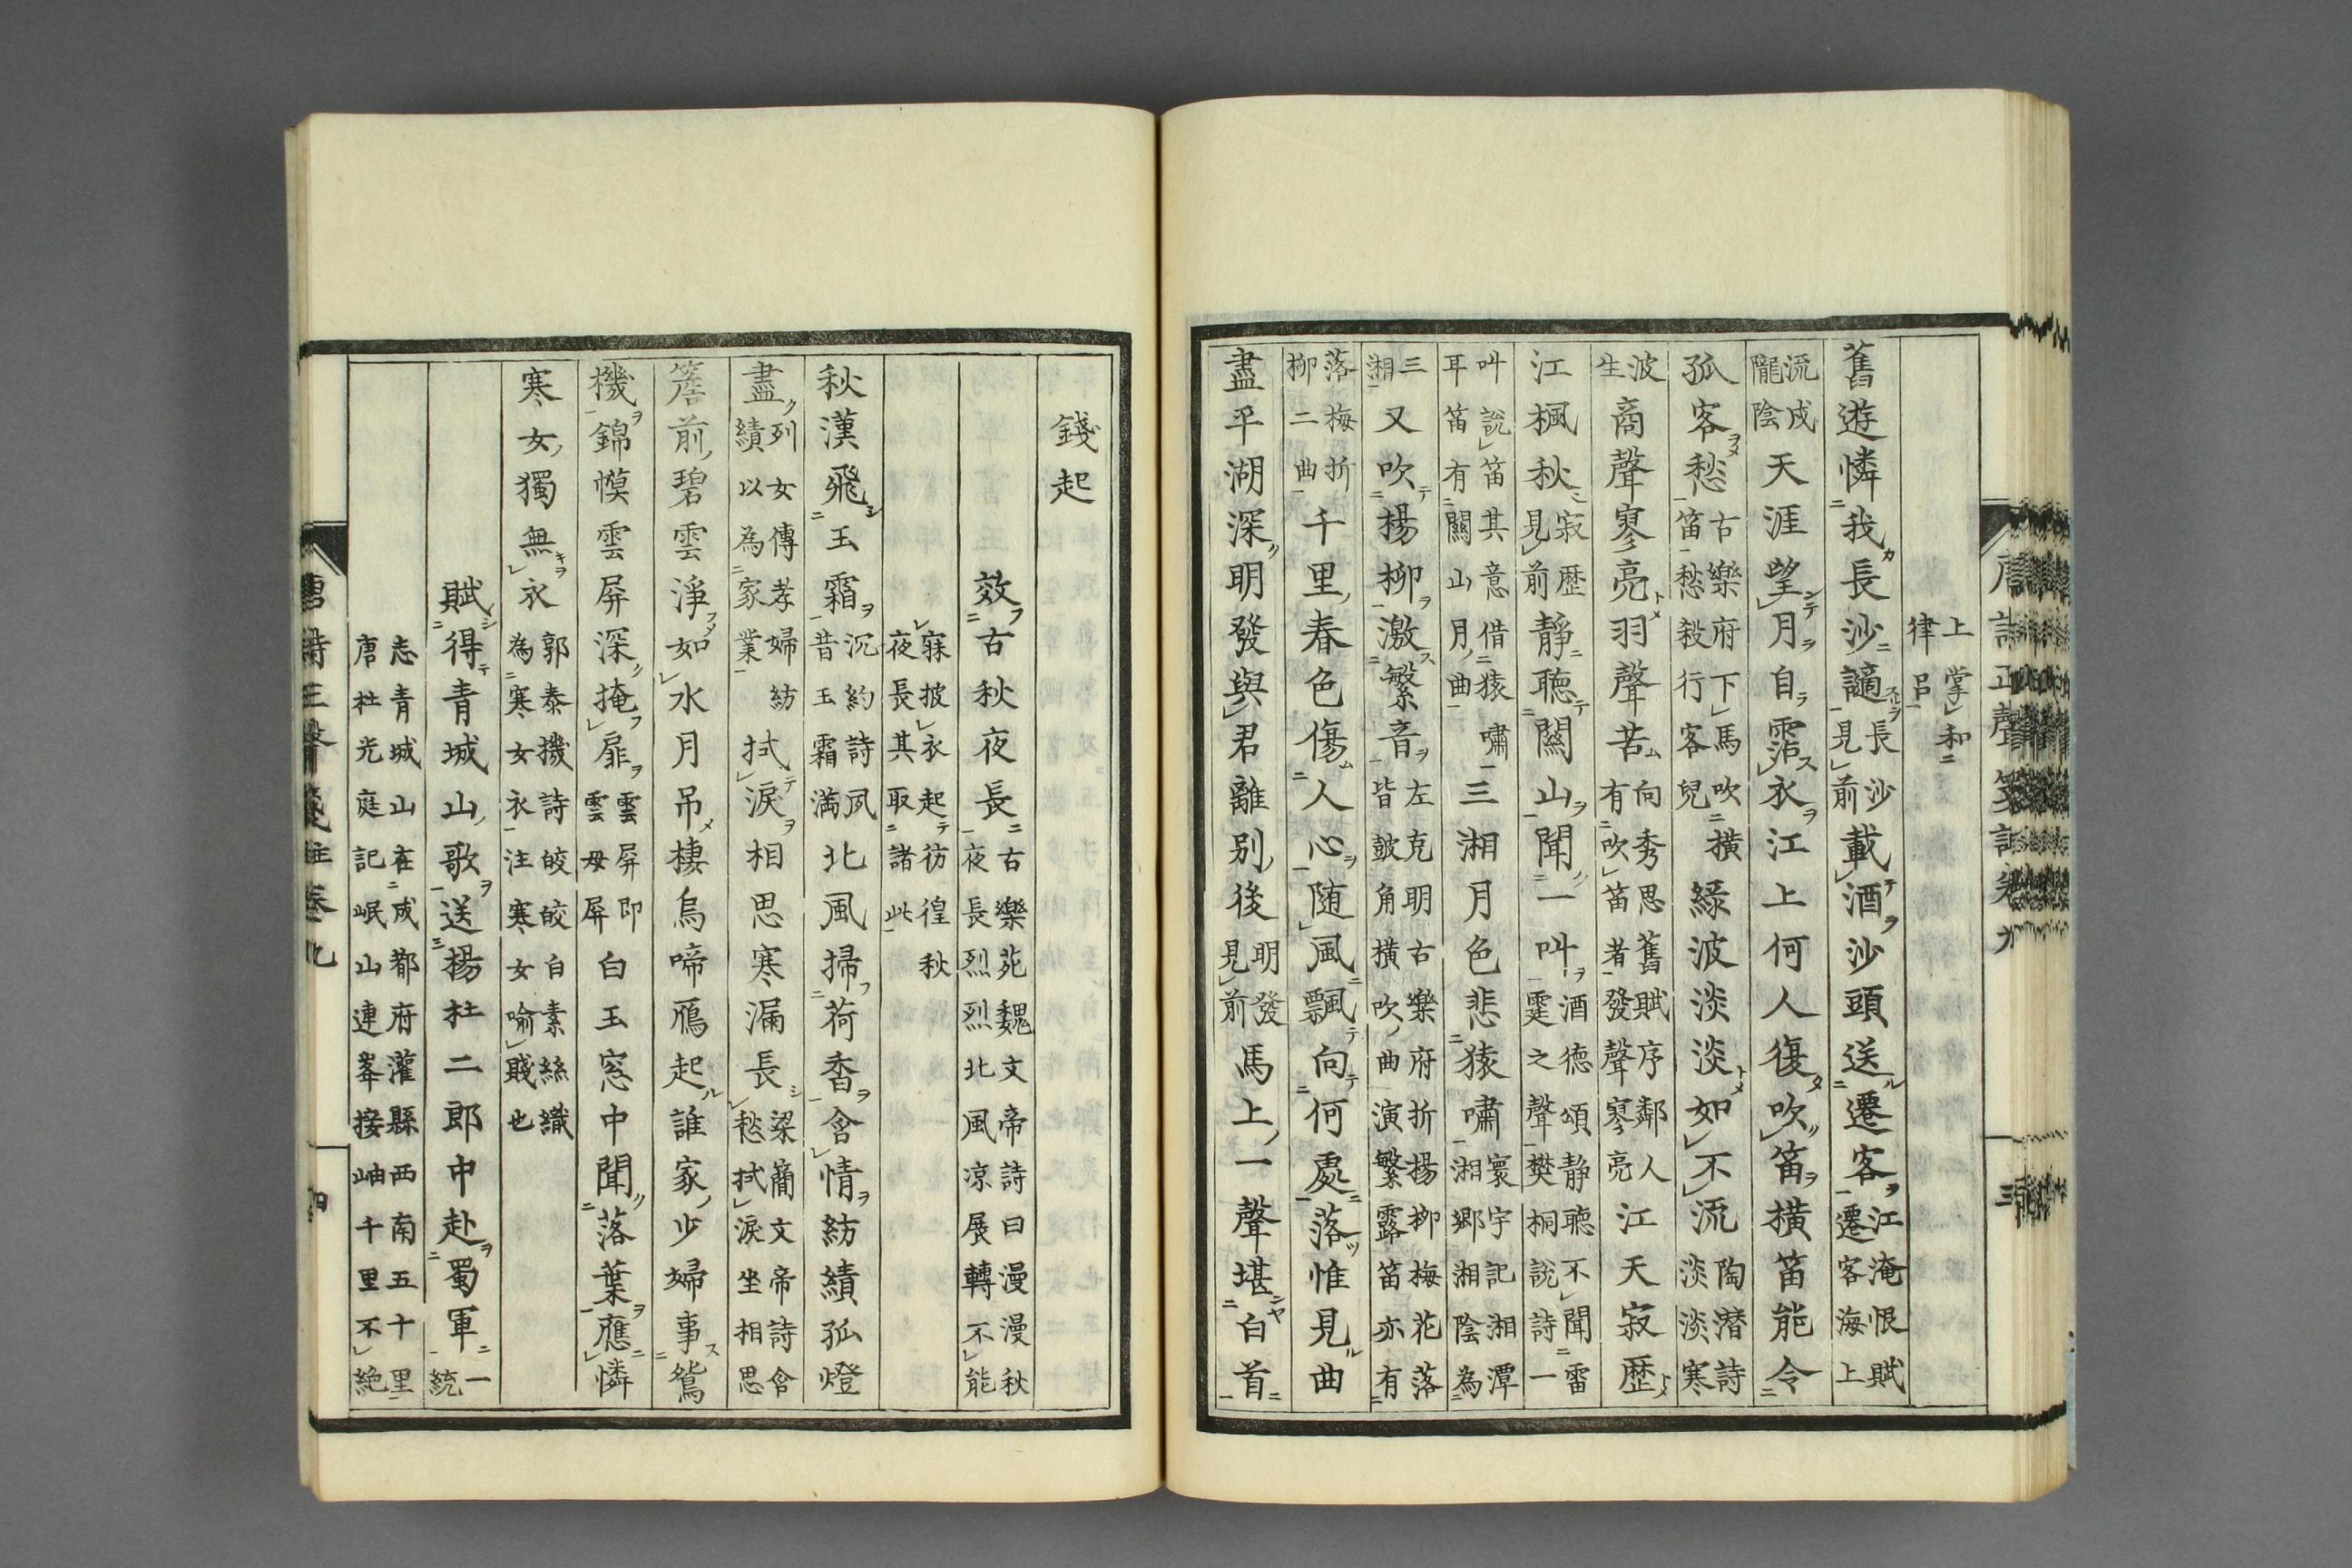 唐詩正聲箋註卷九 三
上掌和律呂
舊遊憐我長沙謫長沙見前載酒沙頭送遷客江淹恨賦遷客海上
流戍隴陰天涯望月自霑衣江上何人復吹笛橫笛能令
孤客愁古樂府下馬吹橫笛愁殺行客兒綠波淡淡如不流陶潜詩淡淡寒
波生商聲寥亮羽聲苦向秀思舊賦序鄰人有吹笛者發聲寥亮江天寂歷
江楓秋寂歷見前靜聽關山聞一叫酒德頌静聽不聞雷霆之聲樊桐說詩一
叫說笛其意借猿嘯耳笛有關山月曲三湘月色悲猿嘯寰宇記湘潭湘鄉湘陰為
三湘又吹楊柳激繁音左克明古樂府折楊柳梅花落皆鼓角橫吹曲演繁露笛亦有
落梅折柳二曲千里春色傷人心随風飄向何處落惟見曲
盡平湖深明發與君離別後明發見前馬上一聲堪白首
錢起
效古秋夜長古樂苑魏文帝詩曰漫漫秋夜長烈烈北風涼展轉不能
寐披衣起彷徨秋夜長其取諸此
秋漢飛玉霜沉約詩夙昔玉霜滿北風掃荷香含情紡績孤燈
盡列女傳孝婦紡績以為家業拭淚相思寒漏長梁簡文帝詩含愁拭淚坐相思
簷前碧雲淨如水月吊棲烏啼鴈起誰家少婦事鴛
機錦幙雲屏深掩扉雲屏即雲母屏白玉窓中聞落葉應憐
寒女獨無衣郭泰機詩皎皎白素絲織為寒女衣注寒女喻賤也
賦得青城山歌送楊杜二郎中赴蜀軍一統
志青城山在成都府灌縣西南五十里唐杜光庭記岷山連峯接岫千里不絕
唐詩正聲箋註卷九 四